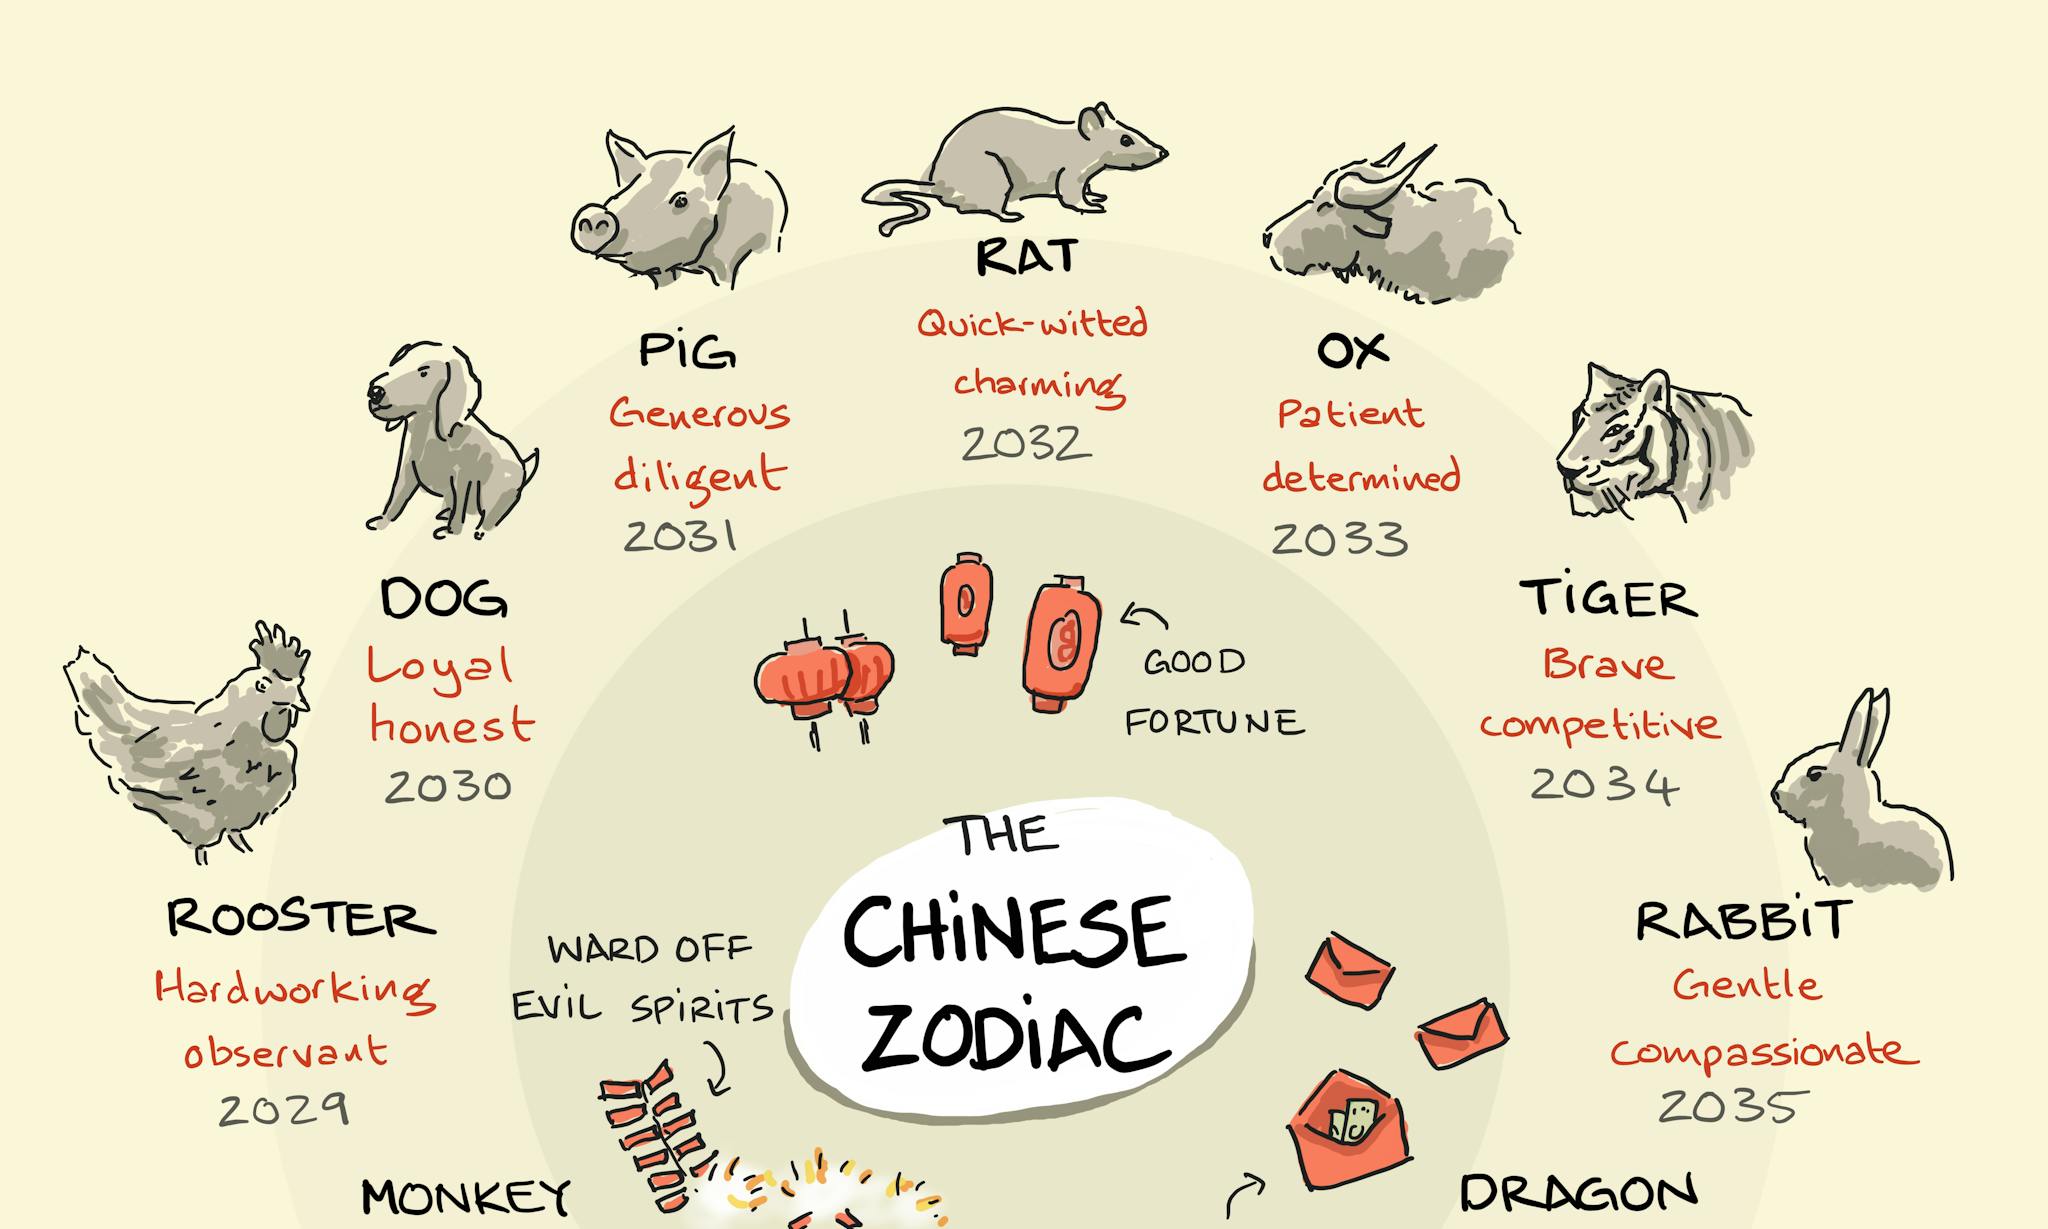 RAT
Quick-witted
charming
2032
PiG
Generous
diligent
2031
OX
Patient
determined
2033
DOG
Loyal
honest
2030
TiGER
Brave
competitive
2034
GOOD
FORTUNE
THE
CHiNESE
ZODiAC
ROOSTER
Hardworking
observant
2029
WARD OFF
EViL SPiRiTS
RABBiT
Gentle
compassionate
2035
MONKEY
DRAGON